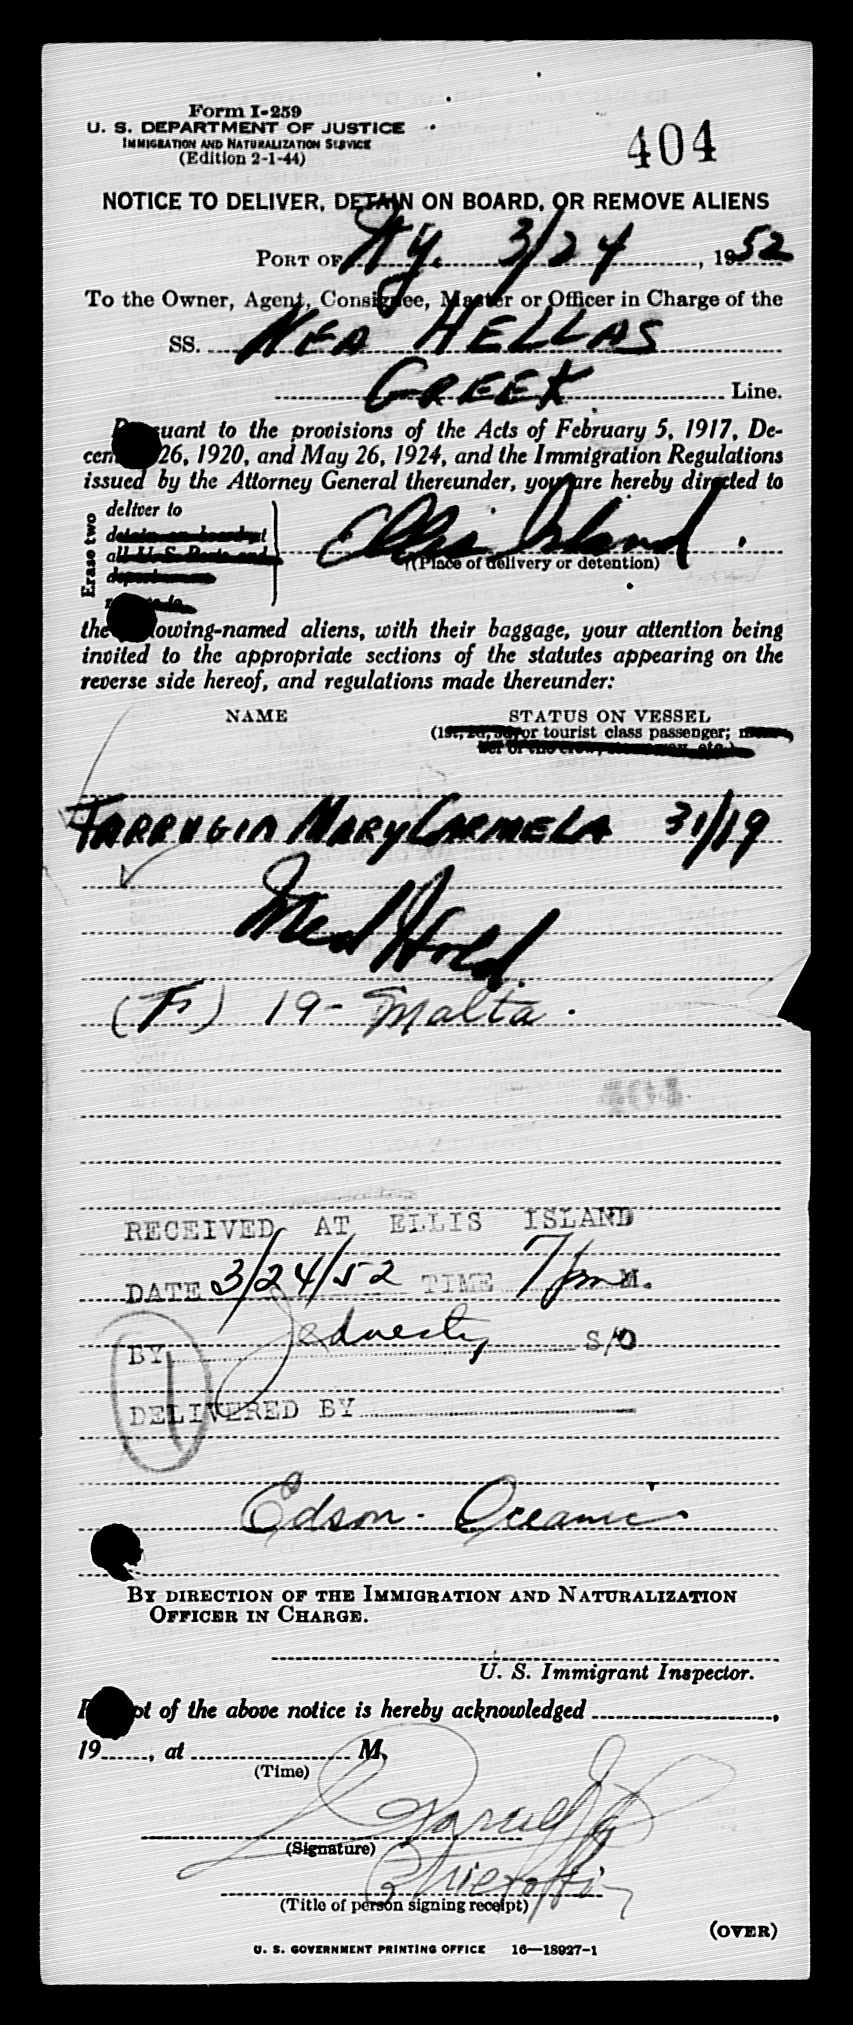 Form I-259
U. S. DEPARTMENT OF JUSTICE
IMMIGRATION AND NATURALIZATION SERVICE
(Edition 2-1-44)
404
NOTICE TO DELIVER, DETAIN ON BOARD, OR REMOVE ALIENS
PORT OF Ny. 3/24, 1952
To the Owner, Agent, Consignee, Master or Officer in Charge of the
SS. NEA HELLAS
GREEK Line.
Pursuant to the provisions of the Acts of February 5, 1917, De-
cem 26, 1920, and May 26, 1924, and the Immigration Regulations
issued by the Attorney General thereunder, you are hereby directed to
Erase two
deliver to
detain on board at
all U. S. Ports and
departments
Ellis Island.
(Place of delivery or detention)
the lowing-named aliens, with their baggage, your attention being
invited to the appropriate sections of the statutes appearing on the
reverse side hereof, and regulations made thereunder:
NAME STATUS ON VESSEL
(1st, 2d, 3d, or tourist class passenger;
FARRUGIA MARY CARMELA 31/19
Med Hold
(F) 19 - Malta.
404
RECEIVED AT ELLIS ISLAND
DATE 3/24/52 TIME 7 pm M.
BY S/O
DELIVERED BY
1
Edson - Oceanic
BY DIRECTION OF THE IMMIGRATION AND NATURALIZATION
OFFICER IN CHARGE.
U. S. Immigrant Inspector.
R pt of the above notice is hereby acknowledged ,
19 , at M.
(Time)
(Signature)
(Title of person signing receipt)
(OVER)
U. S. GOVERNMENT PRINTING OFFICE 16—18927-1